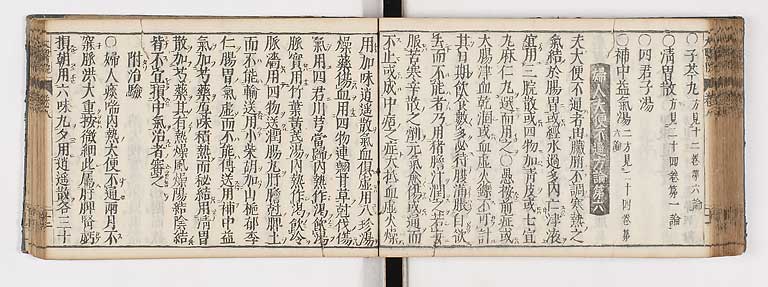 ○子芩丸 方見十二卷第六論
○清胃散 方見二十四卷第一論
○四君子湯
○補中益氣湯 二方見二十四卷第六論
婦人大便不通方論第六
夫大便不通者由臟腑不調寒熱之
氣結於腸胃或經水過多內亡津液
宜用三脘散或四物加青皮或七宣
丸麻仁丸選而用之○愚按前症或
大腸津血乾涸或血虛火爍不可計
其日期飲食數多必待腹滿脹自欲
去而不能者乃用猪膽汁潤之若妄
服苦寒辛散之劑元氣愈傷或通而
不止或成中痞之症大抵血虛火燥
用加味逍遙散氣血俱虛用八珍湯
燥藥傷血用四物連翹甘草尅伐傷
氣用四君川芎當歸內熱作渴飲湯
脈實用竹葉黃芪湯內熱作渴飲冷
脈用四物送潤腸丸肝膽邪土
而不能輸送用小柴胡加山梔郁李
仁腸胃氣虛而不能傳送用補中益
氣加芍藥厚味積熱而秘結用清胃
散加芍藥其有熱燥風燥陽結陰結
皆不宜損中氣治者審之
附治驗
○婦人痰喘內熱大便不通兩月不
寐脈洪大重按微細此屬肝脾腎虧
損朝用六味丸夕用逍遙散各三十